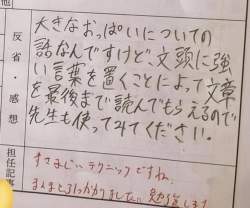 他
大きなおっぱいについての
話なんですけど、文頭に強
い言葉を置くことによって文章
を最後まで読んでもらえるので
先生も使ってみてください。
反省・感想
すさまじいテクニックですね。
まんまと引っかかりました。勉強します
担任記事